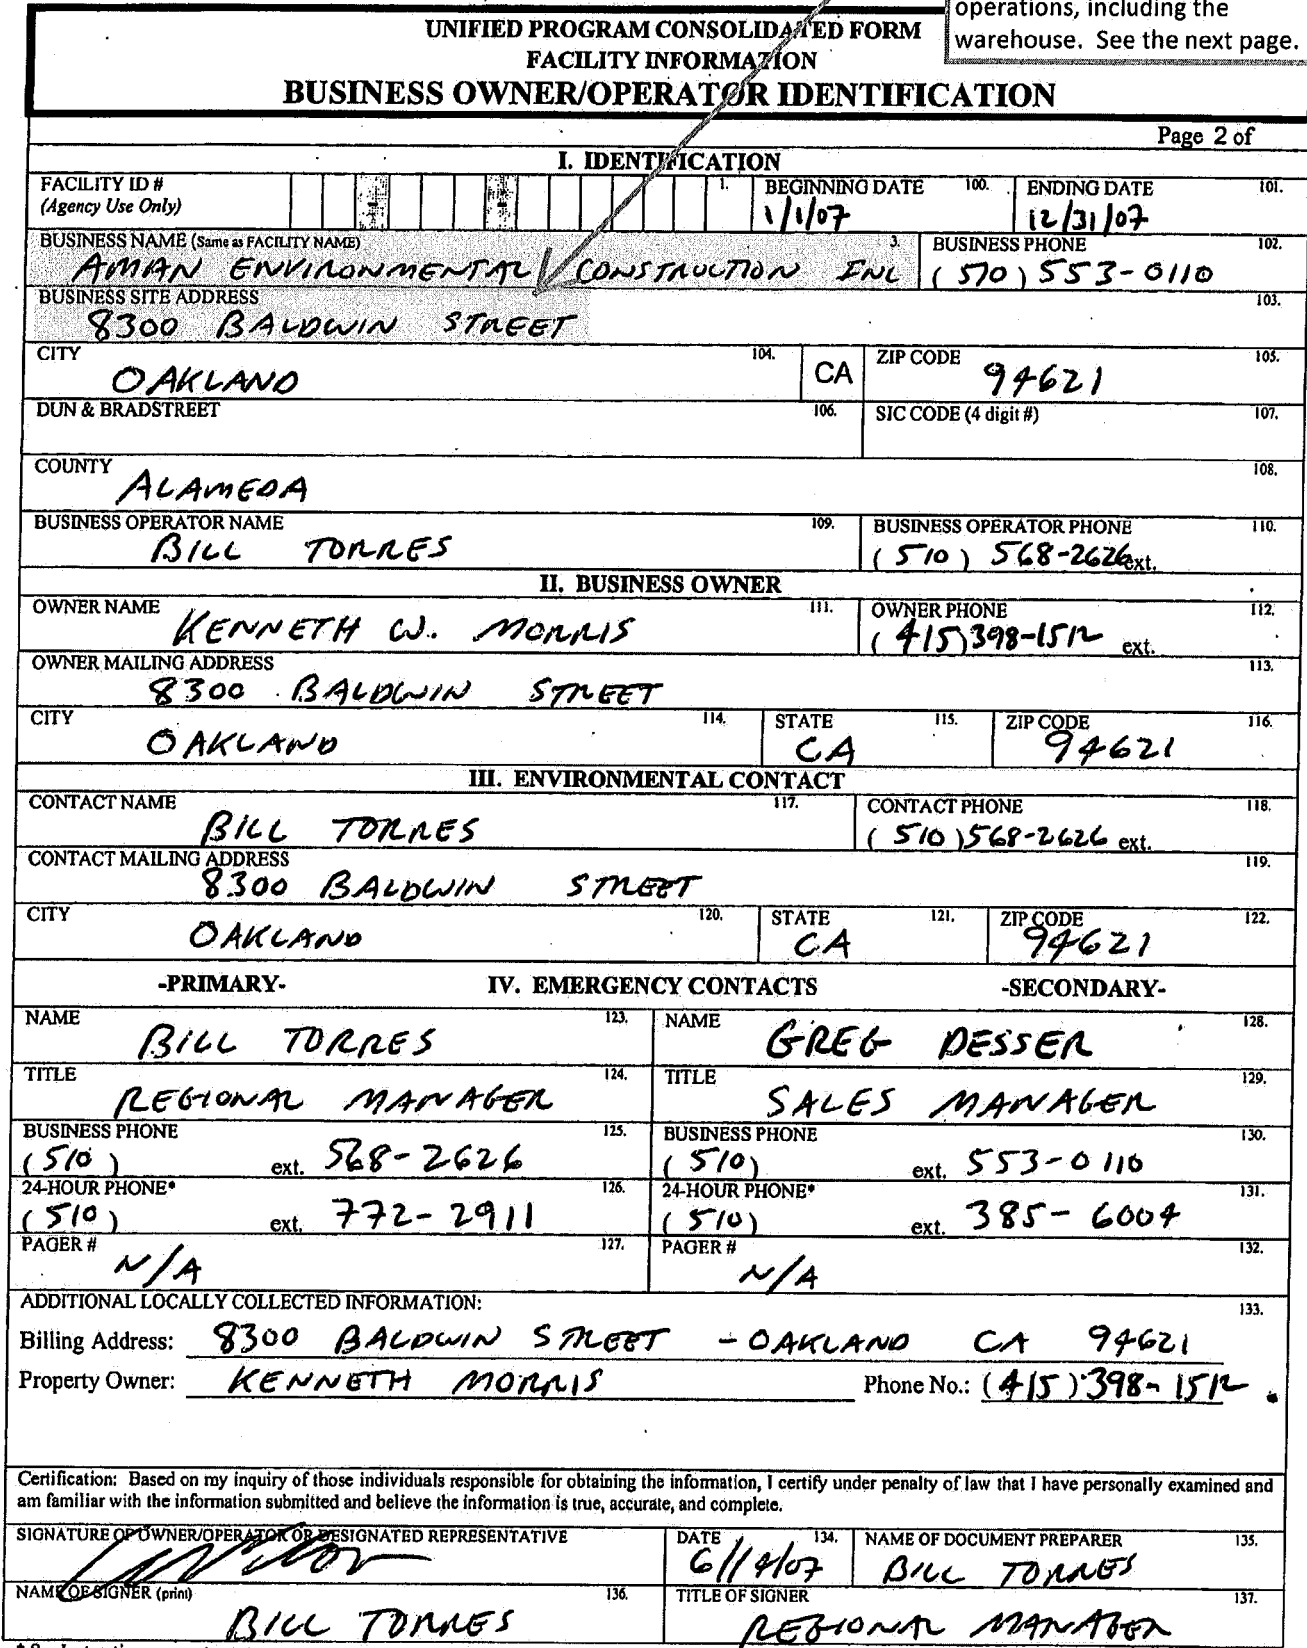 operations, including the
warehouse. See the next page.
UNIFIED PROGRAM CONSOLIDATED FORM
FACILITY INFORMATION
BUSINESS OWNER/OPERATOR IDENTIFICATION
Page 2 of
I. IDENTIFICATION
FACILITY ID # 1. BEGINNING DATE 100. ENDING DATE 101.
(Agency Use Only) - - 1/1/07 12/31/07
BUSINESS NAME (Same as FACILITY NAME) 3. BUSINESS PHONE 102.
AMAN ENVIRONMENTAL CONSTRUCTION INC (510) 553-0110
BUSINESS SITE ADDRESS 103.
8300 BALDWIN STREET
CITY 104. CA ZIP CODE 105.
OAKLAND 94621
DUN & BRADSTREET 106. SIC CODE (4 digit #) 107.
COUNTY 108.
ALAMEDA
BUSINESS OPERATOR NAME 109. BUSINESS OPERATOR PHONE 110.
BILL TORRES (510) 568-2626 ext.
II. BUSINESS OWNER
OWNER NAME 111. OWNER PHONE 112.
KENNETH W. MORRIS (415) 398-1512 ext.
OWNER MAILING ADDRESS 113.
8300 BALDWIN STREET
CITY 114. STATE 115. ZIP CODE 116.
OAKLAND CA 94621
III. ENVIRONMENTAL CONTACT
CONTACT NAME 117. CONTACT PHONE 118.
BILL TORRES (510) 568-2626 ext.
CONTACT MAILING ADDRESS 119.
8300 BALDWIN STREET
CITY 120. STATE 121. ZIP CODE 122.
OAKLAND CA 94621
-PRIMARY- IV. EMERGENCY CONTACTS -SECONDARY-
NAME 123. NAME 128.
BILL TORRES GREG DESSER
TITLE 124. TITLE 129.
REGIONAL MANAGER SALES MANAGER
BUSINESS PHONE 125. BUSINESS PHONE 130.
(510) ext. 568-2626 (510) ext. 553-0110
24-HOUR PHONE* 126. 24-HOUR PHONE* 131.
(510) ext. 772-2911 (510) ext. 385-6004
PAGER # 127. PAGER # 132.
N/A N/A
ADDITIONAL LOCALLY COLLECTED INFORMATION: 133.
Billing Address: 8300 BALDWIN STREET - OAKLAND CA 94621
Property Owner: KENNETH MORRIS Phone No.: (415) 398-1512
Certification: Based on my inquiry of those individuals responsible for obtaining the information, I certify under penalty of law that I have personally examined and
am familiar with the information submitted and believe the information is true, accurate, and complete.
SIGNATURE OF OWNER/OPERATOR OR DESIGNATED REPRESENTATIVE DATE 134. NAME OF DOCUMENT PREPARER 135.
6/14/07 BILL TORRES
NAME OF SIGNER (print) 136. TITLE OF SIGNER 137.
BILL TORRES REGIONAL MANAGER